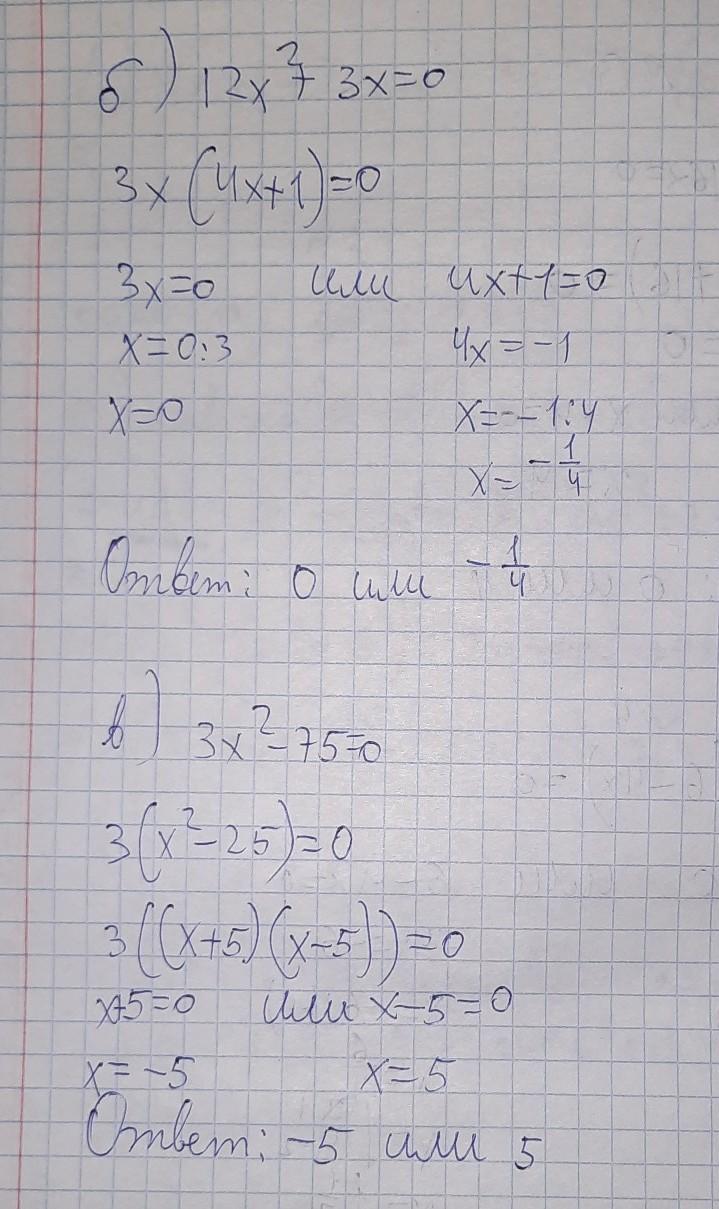 б) 12x² + 3x=0
3x(4x+1)=0
3x=0 или 4x+1=0
x=0:3 4x=-1
x=0 x=-1:4
x=-1/4
Ответ: 0 или -1/4
в) 3x²-75=0
3(x²-25)=0
3((x+5)(x-5))=0
x+5=0 или x-5=0
x=-5 x=5
Ответ: -5 или 5